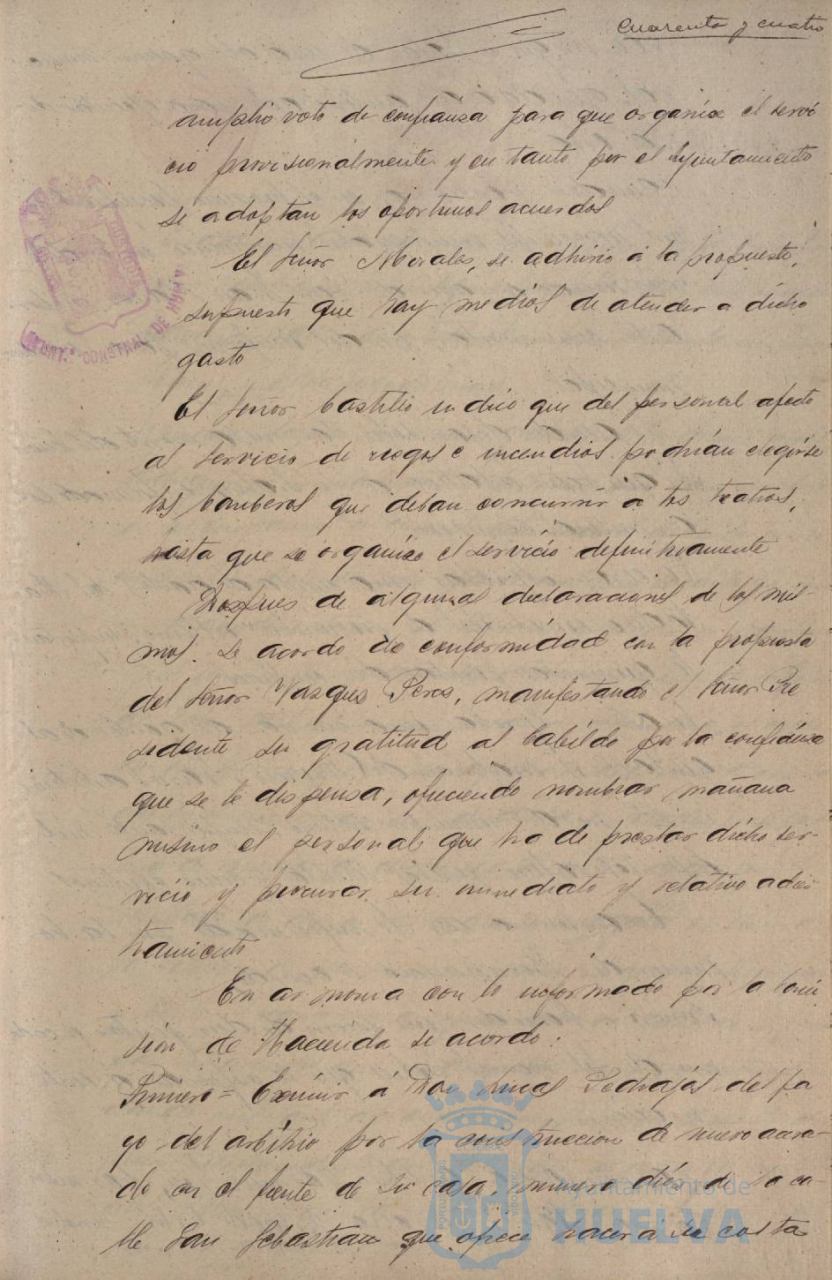 Cuarenta y cuatro
amplio voto de confianza para que organise el servi
cio provisionalmente y en tanto por el Ayuntamiento
se adoptan los oportunos acuerdos
El Señor Morales, se adhirio á la propuesta,
supuesto que hay medios de atender a dicho
gasto
El Señor Castillo indicó que del personal afecto
al servicio de riegos e incendios podrian elegirse
los bomberos que deban concurrir a los teatros,
hasta que se organise el servicio definitivamente
Despues de algunas declaraciones de los mis-
mos. Se acordo de conformidad con la propuesta
del Señor Vasques Peres, manifestando el Señor Pre
sidente su gratitud al Cabildo por la confianza
que se le dispensa, ofreciendo nombrar mañana
mismo el personal que ha de prestar dicho ser-
vicio y procurar su inmediato y relativo adies
tramiento
En armonia con lo informado por la Comi
sión de Hacienda se acordo:
Primero = Eximir á Don Pedrajas del pa
go del arbitrio por la construccion de nuevo acera-
do en el frente de su casa, numero dies de la ca-
lle San Sebastian que ofrece hacer á su costa
AYUNT.º CONSTNAL DE HUELVA
Ayuntamiento de
HUELVA